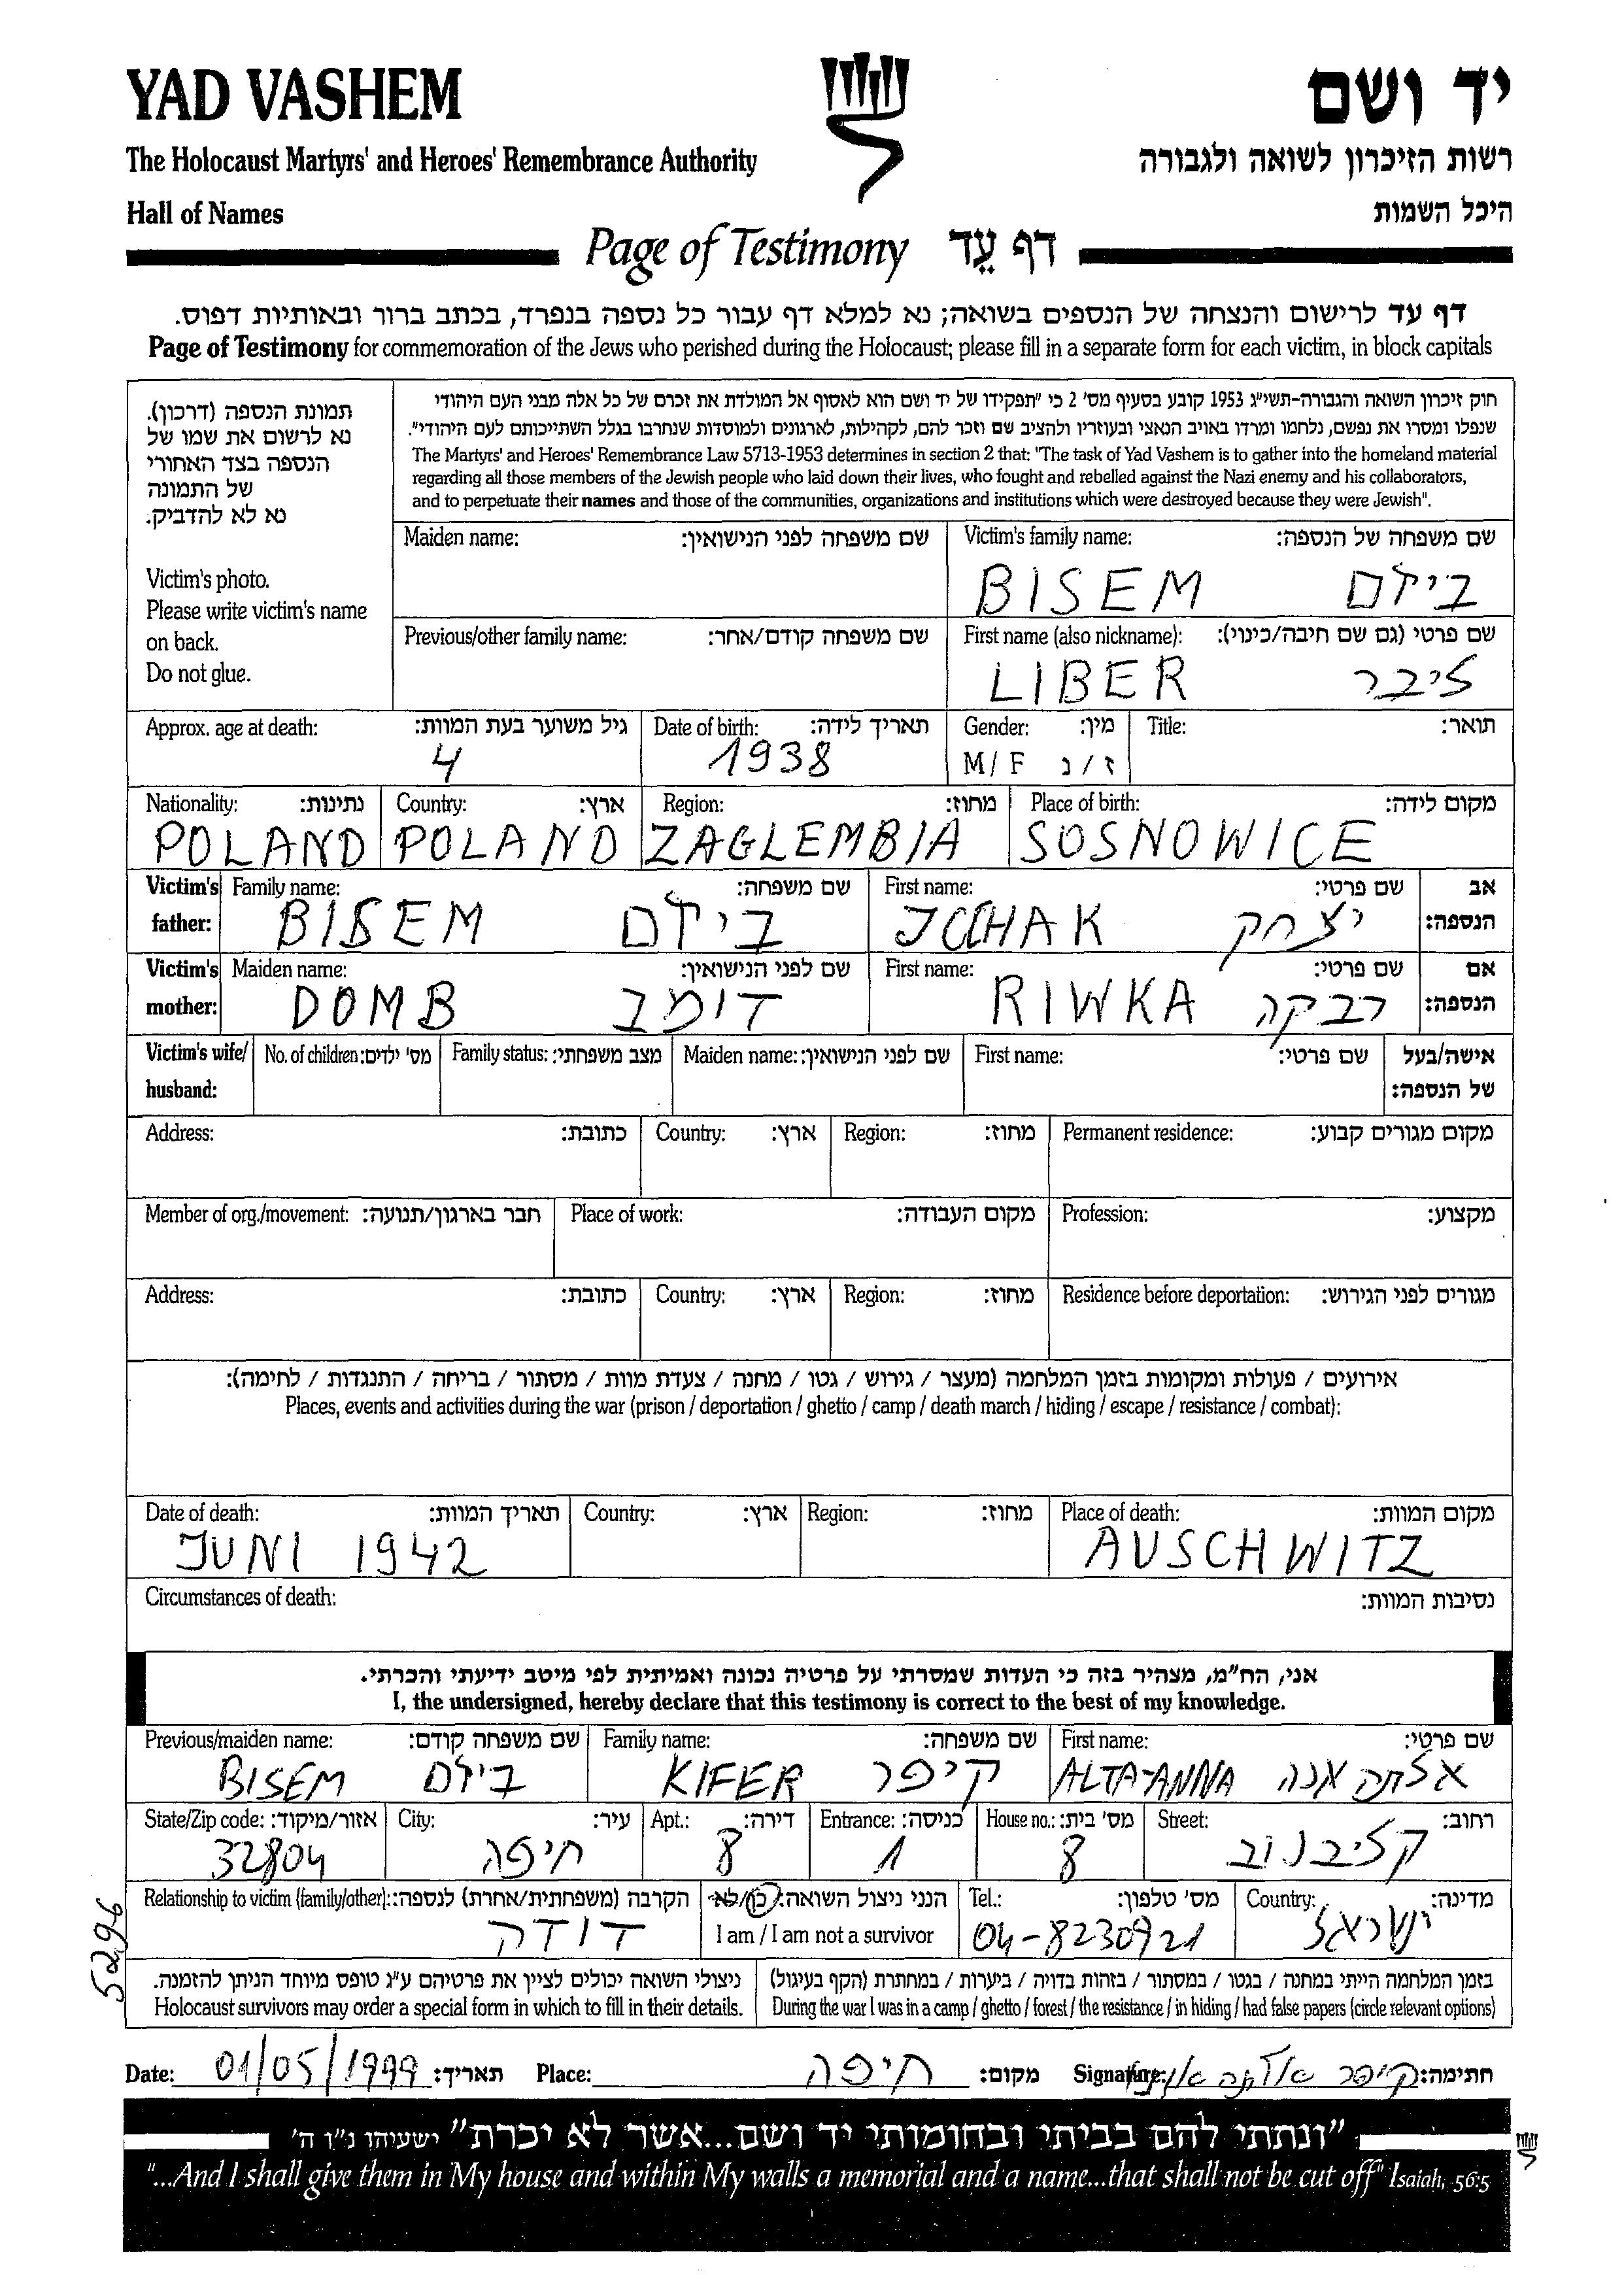 YAD VASHEM
יד ושם
The Holocaust Martyrs' and Heroes' Remembrance Authority
רשות הזיכרון לשואה ולגבורה
Hall of Names
היכל השמות
Page of Testimony דף עֵד
דף עד לרישום והנצחה של הנספים בשואה; נא למלא דף עבור כל נספה בנפרד, בכתב ברור ובאותיות דפוס.
Page of Testimony for commemoration of the Jews who perished during the Holocaust; please fill in a separate form for each victim, in block capitals
תמונת הנספה (דרכון).
נא לרשום את שמו של
הנספה בצד האחורי
של התמונה
נא לא להדביק.
Victim's photo.
Please write victim's name
on back.
Do not glue.
חוק זיכרון השואה והגבורה-תשי"ג 1953 קובע בסעיף מס' 2 כי "תפקידו של יד ושם הוא לאסוף אל המולדת את זכרם של כל אלה מבני העם היהודי
שנפלו ומסרו את נפשם, נלחמו ומרדו באויב הנאצי ובעוזריו ולהציב שם וזכר להם, לקהילות, לארגונים ולמוסדות שנחרבו בגלל השתייכותם לעם היהודי".
The Martyrs' and Heroes' Remembrance Law 5713-1953 determines in section 2 that: "The task of Yad Vashem is to gather into the homeland material
regarding all those members of the Jewish people who laid down their lives, who fought and rebelled against the Nazi enemy and his collaborators,
and to perpetuate their names and those of the communities, organizations and institutions which were destroyed because they were Jewish".
Maiden name: שם משפחה לפני הנישואין:
Victim's family name: שם משפחה של הנספה:
BISEM ביזם
Previous/other family name: שם משפחה קודם/אחר:
First name (also nickname): שם פרטי (גם שם חיבה/כינוי):
LIBER ליבר
Approx. age at death: גיל משוער בעת המוות:
4
Date of birth: תאריך לידה:
1938
Gender: מין:
M/F ז/נ
Title: תואר:
Nationality: נתינות:
POLAND
Country: ארץ:
POLAND
Region: מחוז:
ZAGLEMBIA
Place of birth: מקום לידה:
SOSNOWICE
Victim's father:
Family name: שם משפחה:
BISEM ביזם
First name: שם פרטי:
ICCHAK יצחק
אב הנספה:
Victim's mother:
Maiden name: שם לפני הנישואין:
DOMB דומב
First name: שם פרטי:
RIWKA רבקה
אם הנספה:
Victim's wife/ husband:
No. of children: מס' ילדים:
Family status: מצב משפחתי:
Maiden name: שם לפני הנישואין:
First name: שם פרטי:
אישה/בעל של הנספה:
Address: כתובת:
Country: ארץ:
Region: מחוז:
Permanent residence: מקום מגורים קבוע:
Member of org./movement: חבר בארגון/תנועה:
Place of work: מקום העבודה:
Profession: מקצוע:
Address: כתובת:
Country: ארץ:
Region: מחוז:
Residence before deportation: מגורים לפני הגירוש:
אירועים / פעולות ומקומות בזמן המלחמה (מעצר / גירוש / גטו / מחנה / צעדת מוות / מסתור / בריחה / התנגדות / לחימה):
Places, events and activities during the war (prison / deportation / ghetto / camp / death march / hiding / escape / resistance / combat):
Date of death: תאריך המוות:
JUNI 1942
Country: ארץ:
Region: מחוז:
Place of death: מקום המוות:
AUSCHWITZ
Circumstances of death: נסיבות המוות:
אני, הח"מ, מצהיר בזה כי העדות שמסרתי על פרטיה נכונה ואמיתית לפי מיטב ידיעתי והכרתי.
I, the undersigned, hereby declare that this testimony is correct to the best of my knowledge.
Previous/maiden name: שם משפחה קודם:
BISEM ביזם
Family name: שם משפחה:
KIFER קיפר
First name: שם פרטי:
ALTA-ANNA אלתה אנה
State/Zip code: אזור/מיקוד:
32804
City: עיר:
חיפה
Apt.: דירה:
8
Entrance: כניסה:
1
House no.: מס' בית:
8
Street: רחוב:
קליבנוב
Relationship to victim (family/other): הקרבה (משפחתית/אחרת) לנספה:
דודה
הנני ניצול השואה: כן/לא
I am / I am not a survivor
Tel.: מס' טלפון:
04-8230921
Country: מדינה:
ישראל
5296
ניצולי השואה יכולים לציין את פרטיהם ע"ג טופס מיוחד הניתן להזמנה.
Holocaust survivors may order a special form in which to fill in their details.
בזמן המלחמה הייתי במחנה / בגטו / במסתור / בזהות בדויה / ביערות / במחתרת (הקף בעיגול)
During the war I was in a camp / ghetto / forest / the resistance / in hiding / had false papers (circle relevant options)
Date: 01/05/1999 תאריך: Place: חיפה מקום: Signature: קיפר אלתה חתימה:
"ונתתי להם בביתי ובחומותי יד ושם...אשר לא יכרת" ישעיהו נ"ו ה'
"...And I shall give them in My house and within My walls a memorial and a name...that shall not be cut off" Isaiah, 56:5